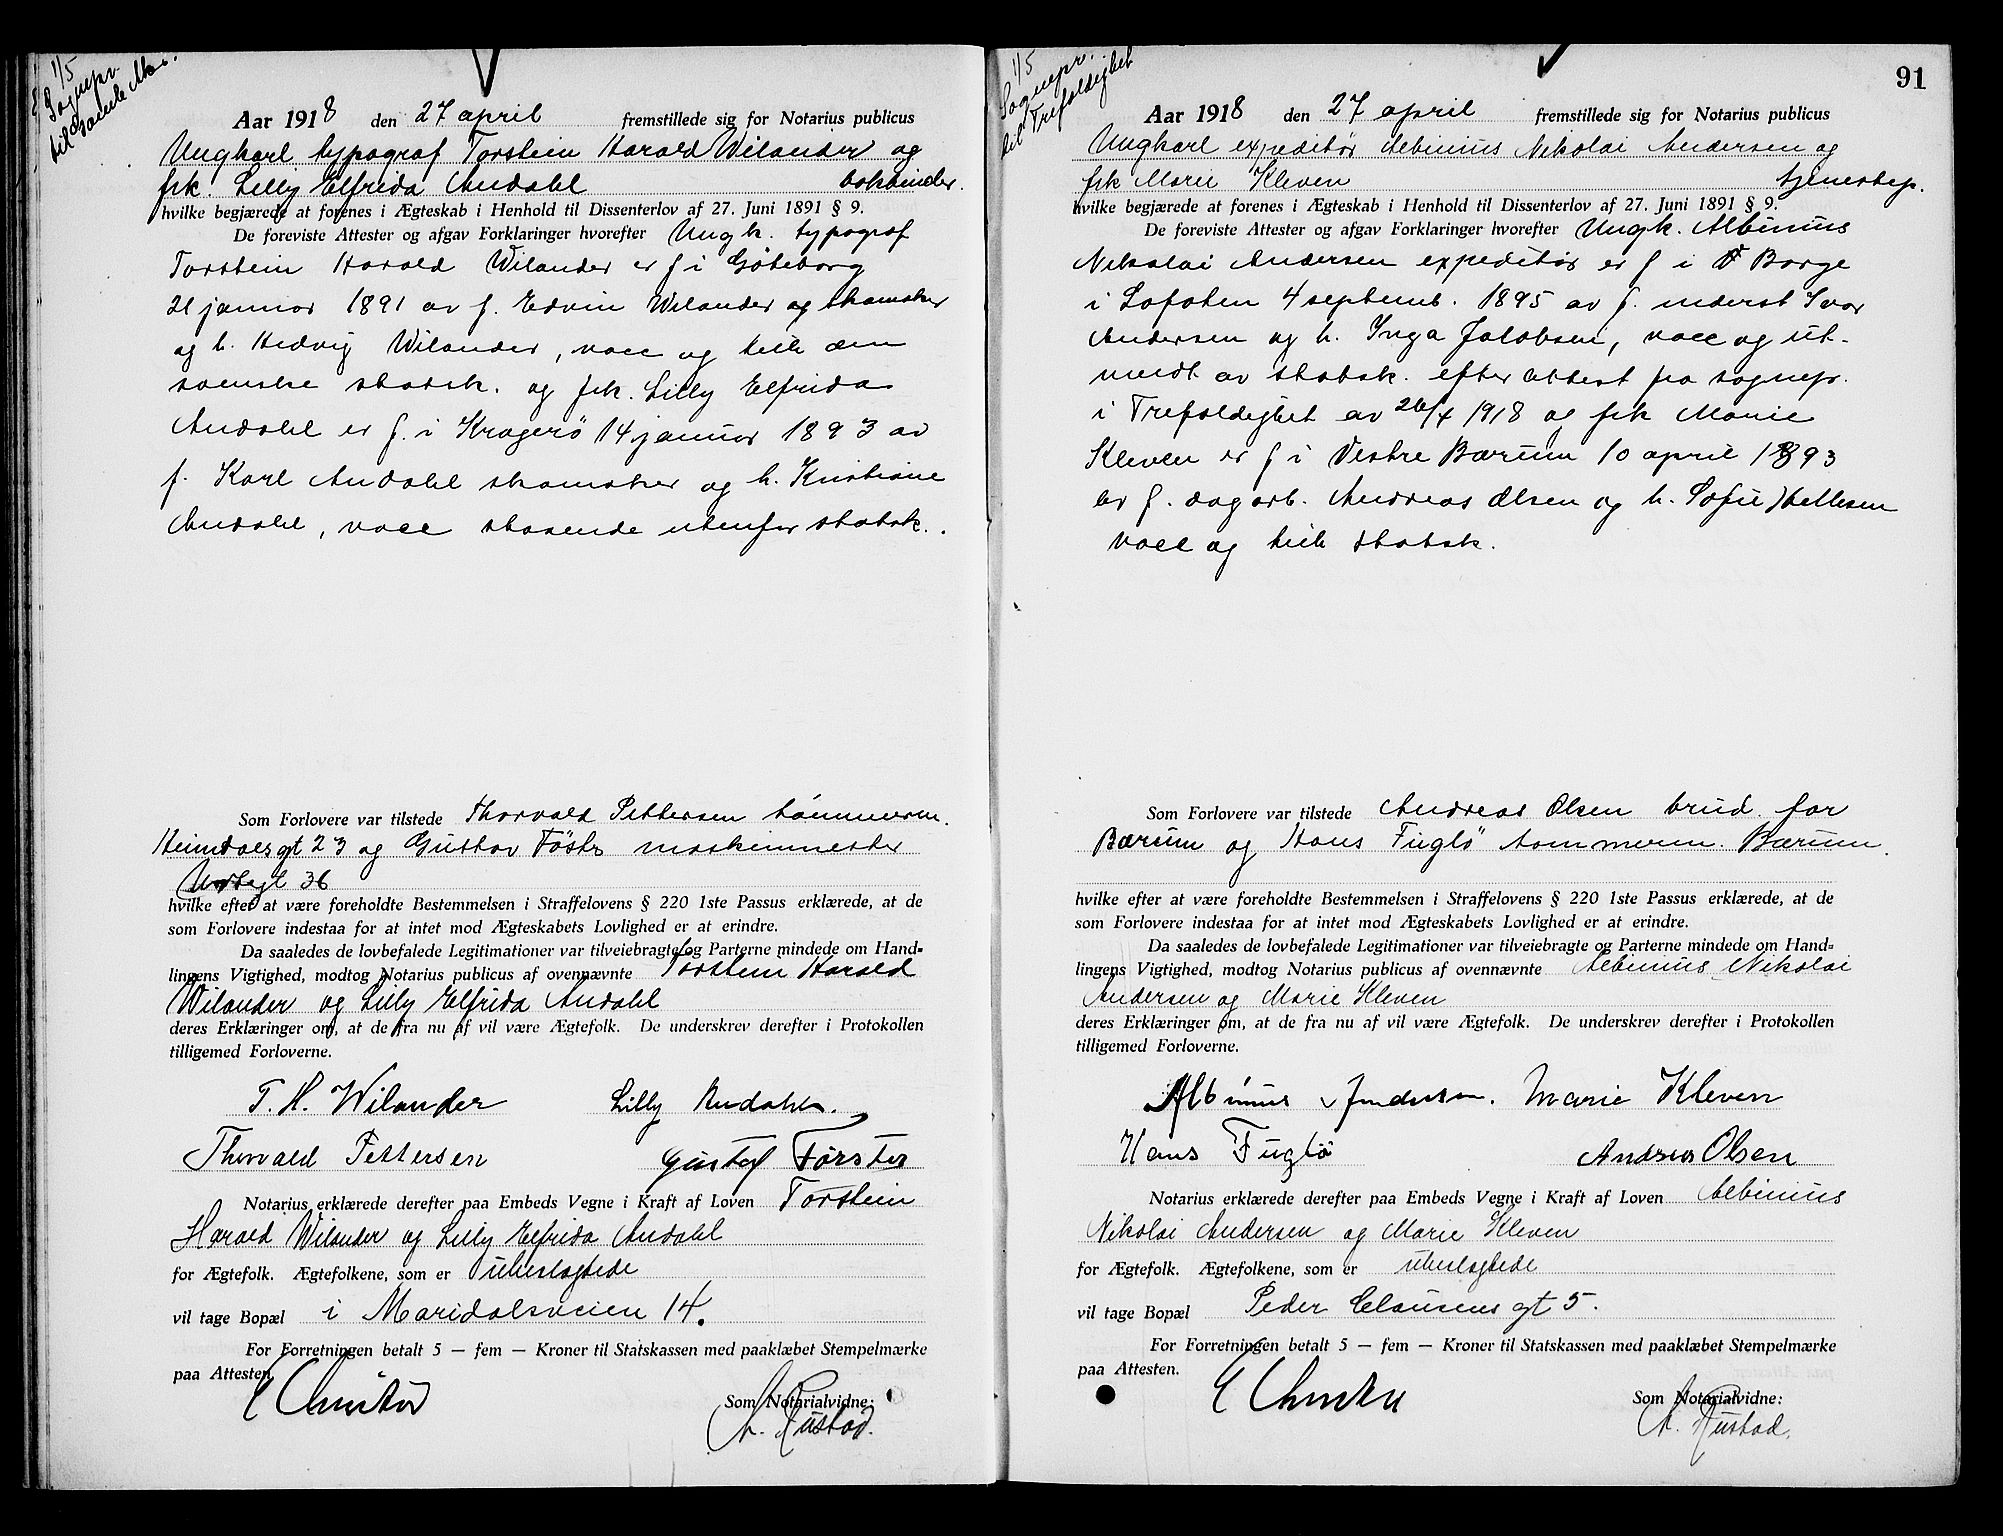 1/5
Sognepr.
til Gamle Aker.
Aar 1918 den 27 april fremstillede sig for Notarius publicus
Ungkarl typograf Torstein Harald Wilander og
frk. Lilly Elfrida Andahl bokbinder.
hvilke begjærede at forenes i Ægteskab i Henhold til Dissenterlov af 27. Juni 1891 § 9.
De foreviste Attester og afgav Forklaringer hvorefter Ungk. typograf
Torstein Harald Wilander er f i Göteborg
21 januar 1891 av f. Edvin Wilander og skomaker
og h. Hedvig Wilander, vacc og tilh den
svenske statsk. og frk. Lilly Elfrida
Andahl er f. i Kragerö 14 januar 1893 av
f. Karl Andahl skomaker og h. Kristiane
Andahl, vacc staaende utenfor statsk.
Som Forlovere var tilstede Thorvald Pettersen tömmerm.
Heimdalsgt 23 og Gustav Föstr maskinmester
Urtegt 36
hvilke efter at være foreholdte Bestemmelsen i Straffelovens § 220 1ste Passus erklærede, at de
som Forlovere indestaa for at intet mod Ægteskabets Lovlighed er at erindre.
Da saaledes de lovbefalede Legitimationer var tilveiebragte og Parterne mindede om Hand-
lingens Vigtighed, modtog Notarius publicus af ovennævnte Torstein Harald
Wilander og Lilly Elfrida Andahl
deres Erklæringer om, at de fra nu af vil være Ægtefolk. De underskrev derefter i Protokollen
tilligemed Forloverne.
T. H. Wilander Lilly Andahl.
Thorvald Pettersen Gustaf Förster
Notarius erklærede derefter paa Embeds Vegne i Kraft af Loven Torstein
Harald Wilander og Lilly Elfrida Andahl
for Ægtefolk. Ægtefolkene, som er ubeslægtede
vil tage Bopæl i Maridalsveien 14.
For Forretningen betalt 5 — fem — Kroner til Statskassen med paaklæbet Stempelmærke
paa Attesten.
E Christie
Som Notarialvidne:
A. Rustad.
91
1/5
Sognepr.
til Trefoldighet
Aar 1918 den 27 april fremstillede sig for Notarius publicus
Ungkarl expeditör Albinius Nikolai Andersen og
frk Marie Kleven tjenestep.
hvilke begjærede at forenes i Ægteskab i Henhold til Dissenterlov af 27. Juni 1891 § 9.
De foreviste Attester og afgav Forklaringer hvorefter Ungk. Albinius
Nikolai Andersen expeditör er f i Borge
i Lofoten 4 septemb. 1895 av f. inderst Ivar
Andersen og h. Inga Jakobsen, vacc og ut-
meldt av statsk. efter attest fra sognepr.
i Trefoldighet av 26/4 1918 og frk Marie
Kleven er f i Vestre Bærum 10 april 1893
av f. dagarb. Andreas Olsen og h. Sofie Hellesen
vacc og tilh statsk.
Som Forlovere var tilstede Andreas Olsen brud. far
Bærum og Hans Fuglö tømmerm. Bærum.
hvilke efter at være foreholdte Bestemmelsen i Straffelovens § 220 1ste Passus erklærede, at de
som Forlovere indestaa for at intet mod Ægteskabets Lovlighed er at erindre.
Da saaledes de lovbefalede Legitimationer var tilveiebragte og Parterne mindede om Hand-
lingens Vigtighed, modtog Notarius publicus af ovennævnte Albinius Nikolai
Andersen og Marie Kleven
deres Erklæringer om, at de fra nu af vil være Ægtefolk. De underskrev derefter i Protokollen
tilligemed Forloverne.
Albinius Andersen. Marie Kleven
Hans Fuglö Andreas Olsen
Notarius erklærede derefter paa Embeds Vegne i Kraft af Loven Albinius
Nikolai Andersen og Marie Kleven
for Ægtefolk. Ægtefolkene, som er ubeslægtede
vil tage Bopæl Peder Clausens gt 5.
For Forretningen betalt 5 — fem — Kroner til Statskassen med paaklæbet Stempelmærke
paa Attesten.
E Christie
Som Notarialvidne:
A. Rustad.